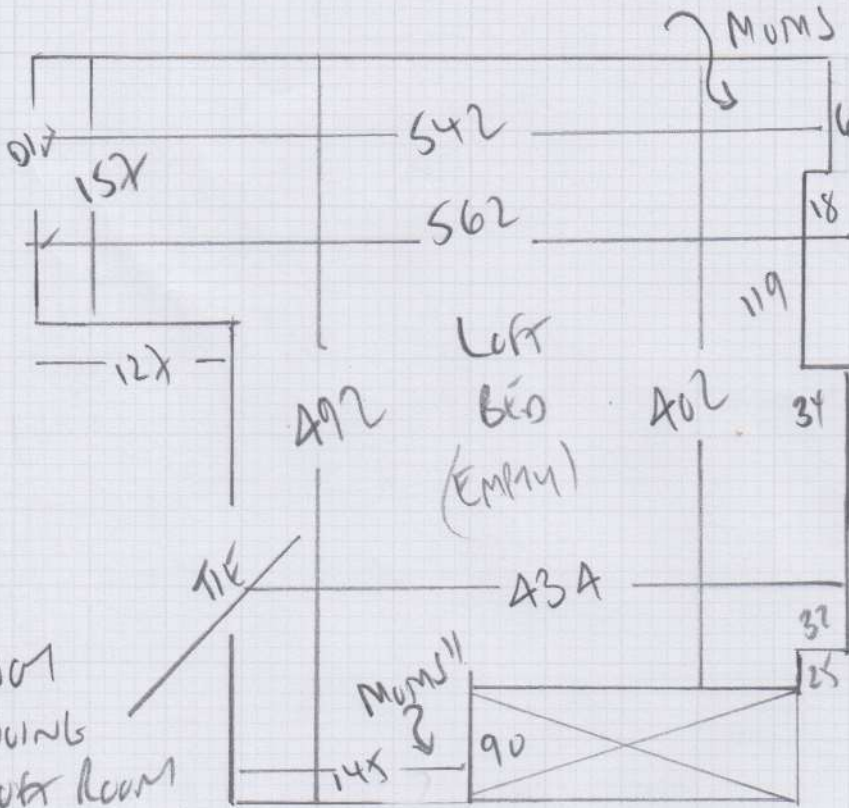 MUMS
542
DIV
15X
562
18
119
12X
LOFT
BED
(EMPTY)
492
402
34
TIE
434
32
25
MUMS"
90
145
ROOM